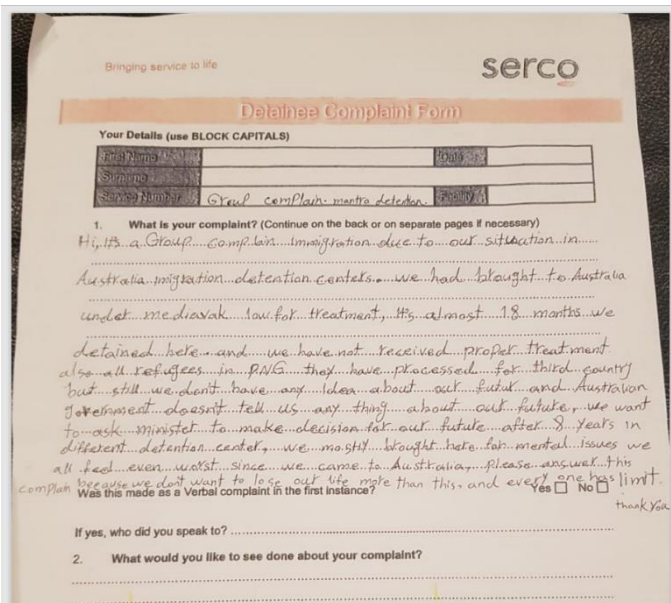 Bringing service to life
serco
Detainee Complaint Form
Your Details (use BLOCK CAPITALS)
First Name Date
Surname
Service Number Group complain. mantra detention. Facility
1. What is your complaint? (Continue on the back or on separate pages if necessary)
Hi, It's a Group complain immigration due to our situation in
Australia imigration detention centers. we had brought to Australia
under mediavak low for treatment, It's almost 18 months we
detained here. and we have not received proper treatment
also all refugees in PNG they have processed for third country
but still we don't have any Idea about out futur and Australian
government doesn't tell us any thing about out future, we want
to ask minister to make decision for our future after 8 years in
different detention center, we mostly brought here for mental issues we
all feel even worst since we came to Australia, please answer this
complain because we don't want to lose out life more than this, and every one has limit.
thank you
Was this made as a Verbal complaint in the first instance? Yes No
If yes, who did you speak to?
2. What would you like to see done about your complaint?